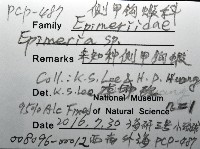 PCP-487 側甲鉤蝦科
Family Epimeriidae
Epimeria sp.
Remarks 未知种側甲鉤蝦
Coll: K.S. Lee & H.D. Huang
Det. K.S. Lee
National Museum
95% Alc Fmag of Natural Science
Date 2016.7.30
008696-00012 PCP-487